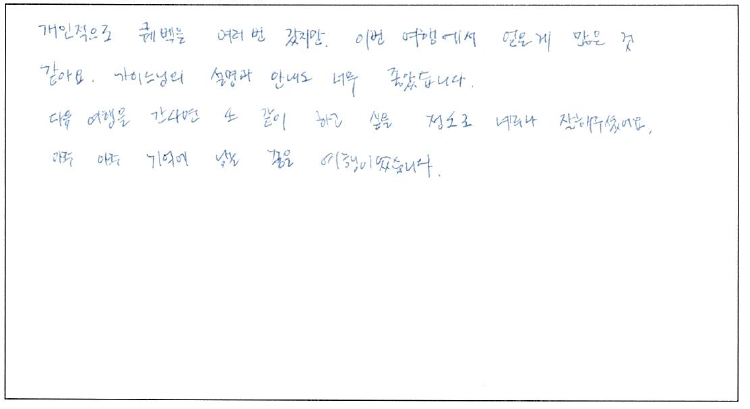 개인적으로 퀘벡을 여러번 갔지만. 이번 여행에서 얻은게 많은 것
같아요. 가이드님의 설명과 안내도 너무 좋았습니다.
다음 여행을 간다면 또 같이 하고 싶을 정도로 너무나 잘해주셨어요.
아주 아주 기억에 남는 좋은 여행이였습니다.